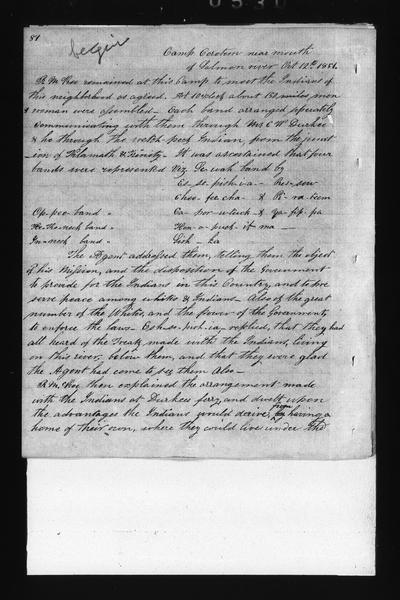 0530
81
begin
Camp Corotem near mouth
of Salmon river Oct 12th 1851.
R. M. Kee remained at this Camp to meet the Indians of
this neighborhood as agreed. At 10 o'clock about 150 miles, men
& woman were assembled — Each band arranged seperately
communicating with them through Mr C. W. Durkee
& he through the weitch-peek Indian, from the junct
-ion of Klamath & Trinity — It was ascertained that four
bands were represented Viz, Se-wah band by
Es-se-pish-ia — Res-ser
Ches-fee-cha- & R-ra-tem
Op-peo band " Ca-por-u-tuck & Ya-fip-pa
Ho-te-neck band " Hon-a-puch-if-ma —
In-neck band " Sish-ka
The Agent addressed them, telling them the object
of his Mission, and the disposition of the Government
to provide for the Indians in this Country, and to pre
serve peace among whites & Indians — Also of the great
number of the Whites, and the power of the Government,
to enforce the laws — replied, that they had
all heard of the Treaty made with the Indians, living
on this river, below them, and that they were glad
the Agent had come to see them Also —
R. M. Kee then explained the arrangement made
with the Indians at Durkees ferry, and dwelt upon
the advantages the Indians would derive, from having a
home of their own, where they could live under the